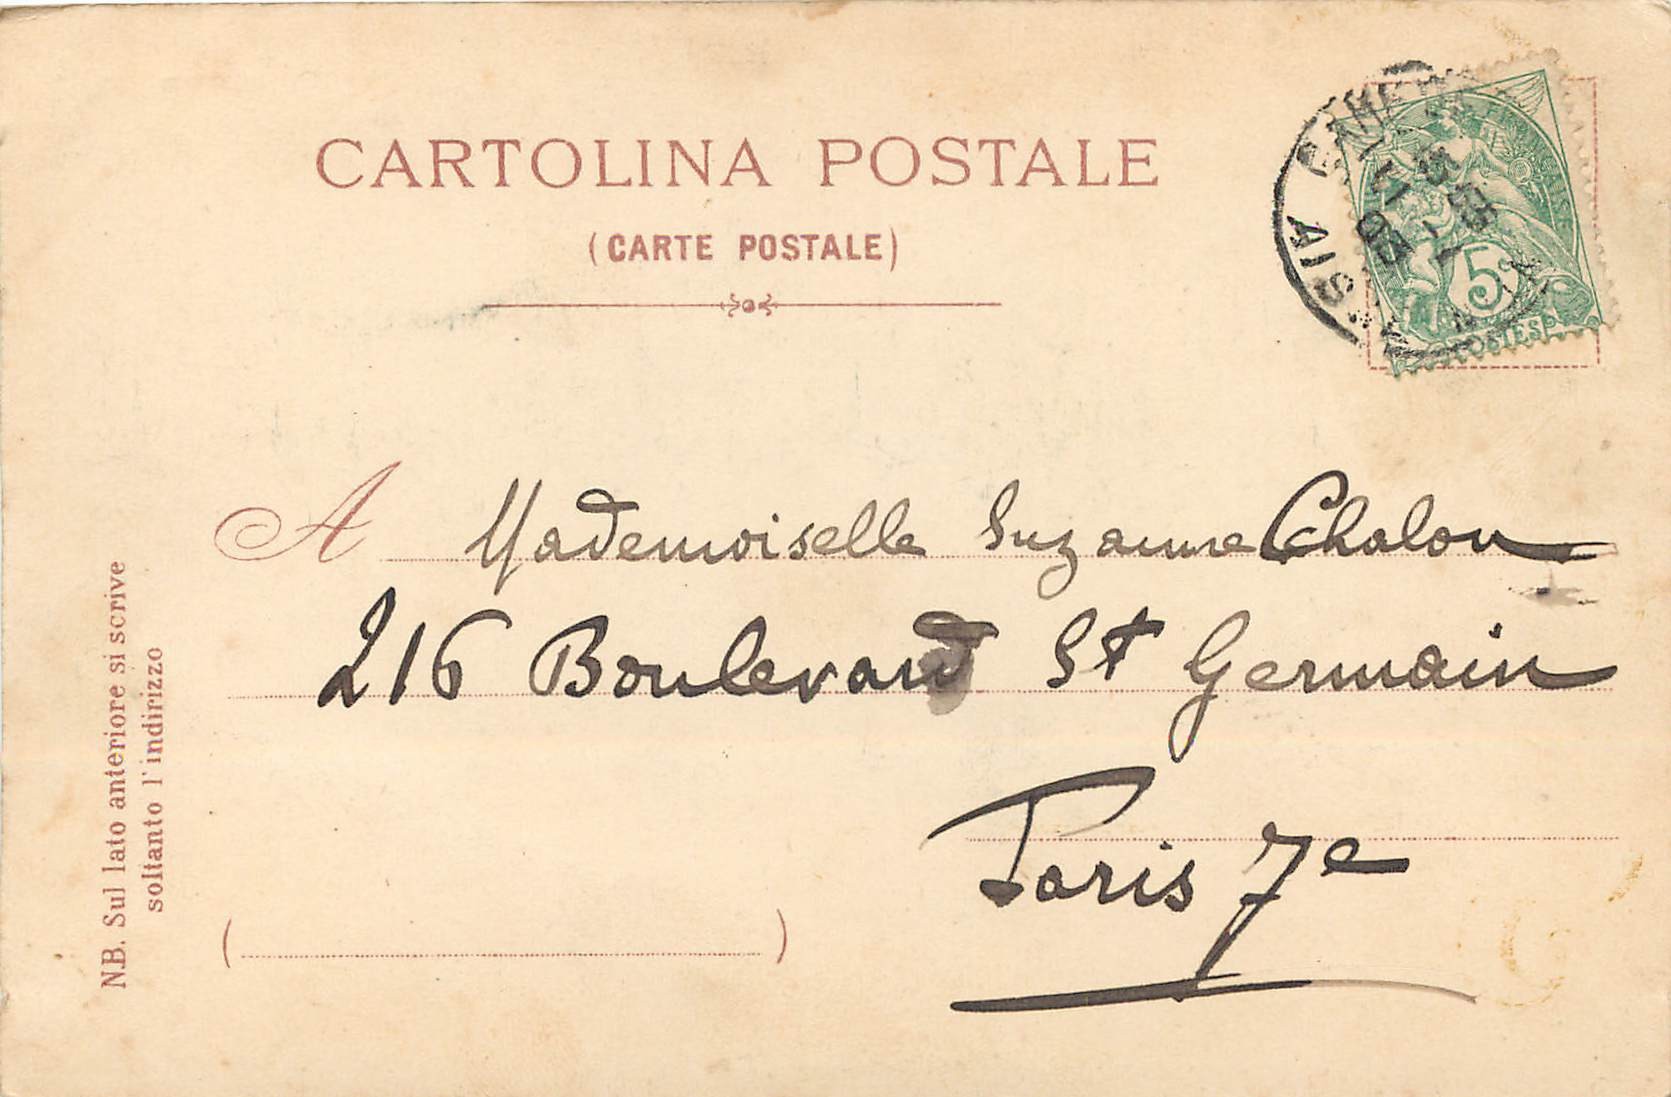 CARTOLINA POSTALE
(CARTE POSTALE)
5
POSTES
AISNE
A Mademoiselle Suzanne Chalon
216 Boulevard St Germain
Paris 7e
N.B. Sul lato anteriore si scrive
soltanto l'indirizzo